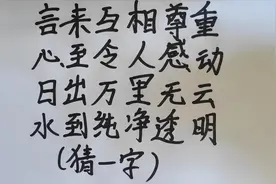 言来互相尊重
心至令人感动
日出万里无云
水到纯净透明
(猜一字)